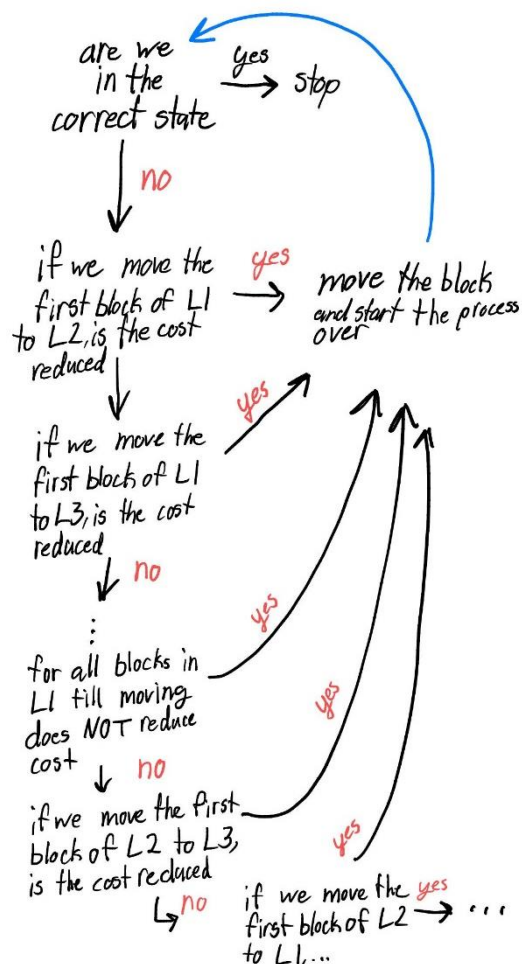 are we
in the
correct state
yes
stop
no
if we move the
first block of L1
to L2, is the cost
reduced
yes
move the block
and start the process
over
if we move the
first block of L1
to L3, is the cost
reduced
yes
no
...
for all blocks in
L1 till moving
does NOT reduce
cost
yes
no
if we move the first
block of L2 to L3,
is the cost reduced
yes
no
if we move the
first block of L2
to L1,...
yes
yes
...